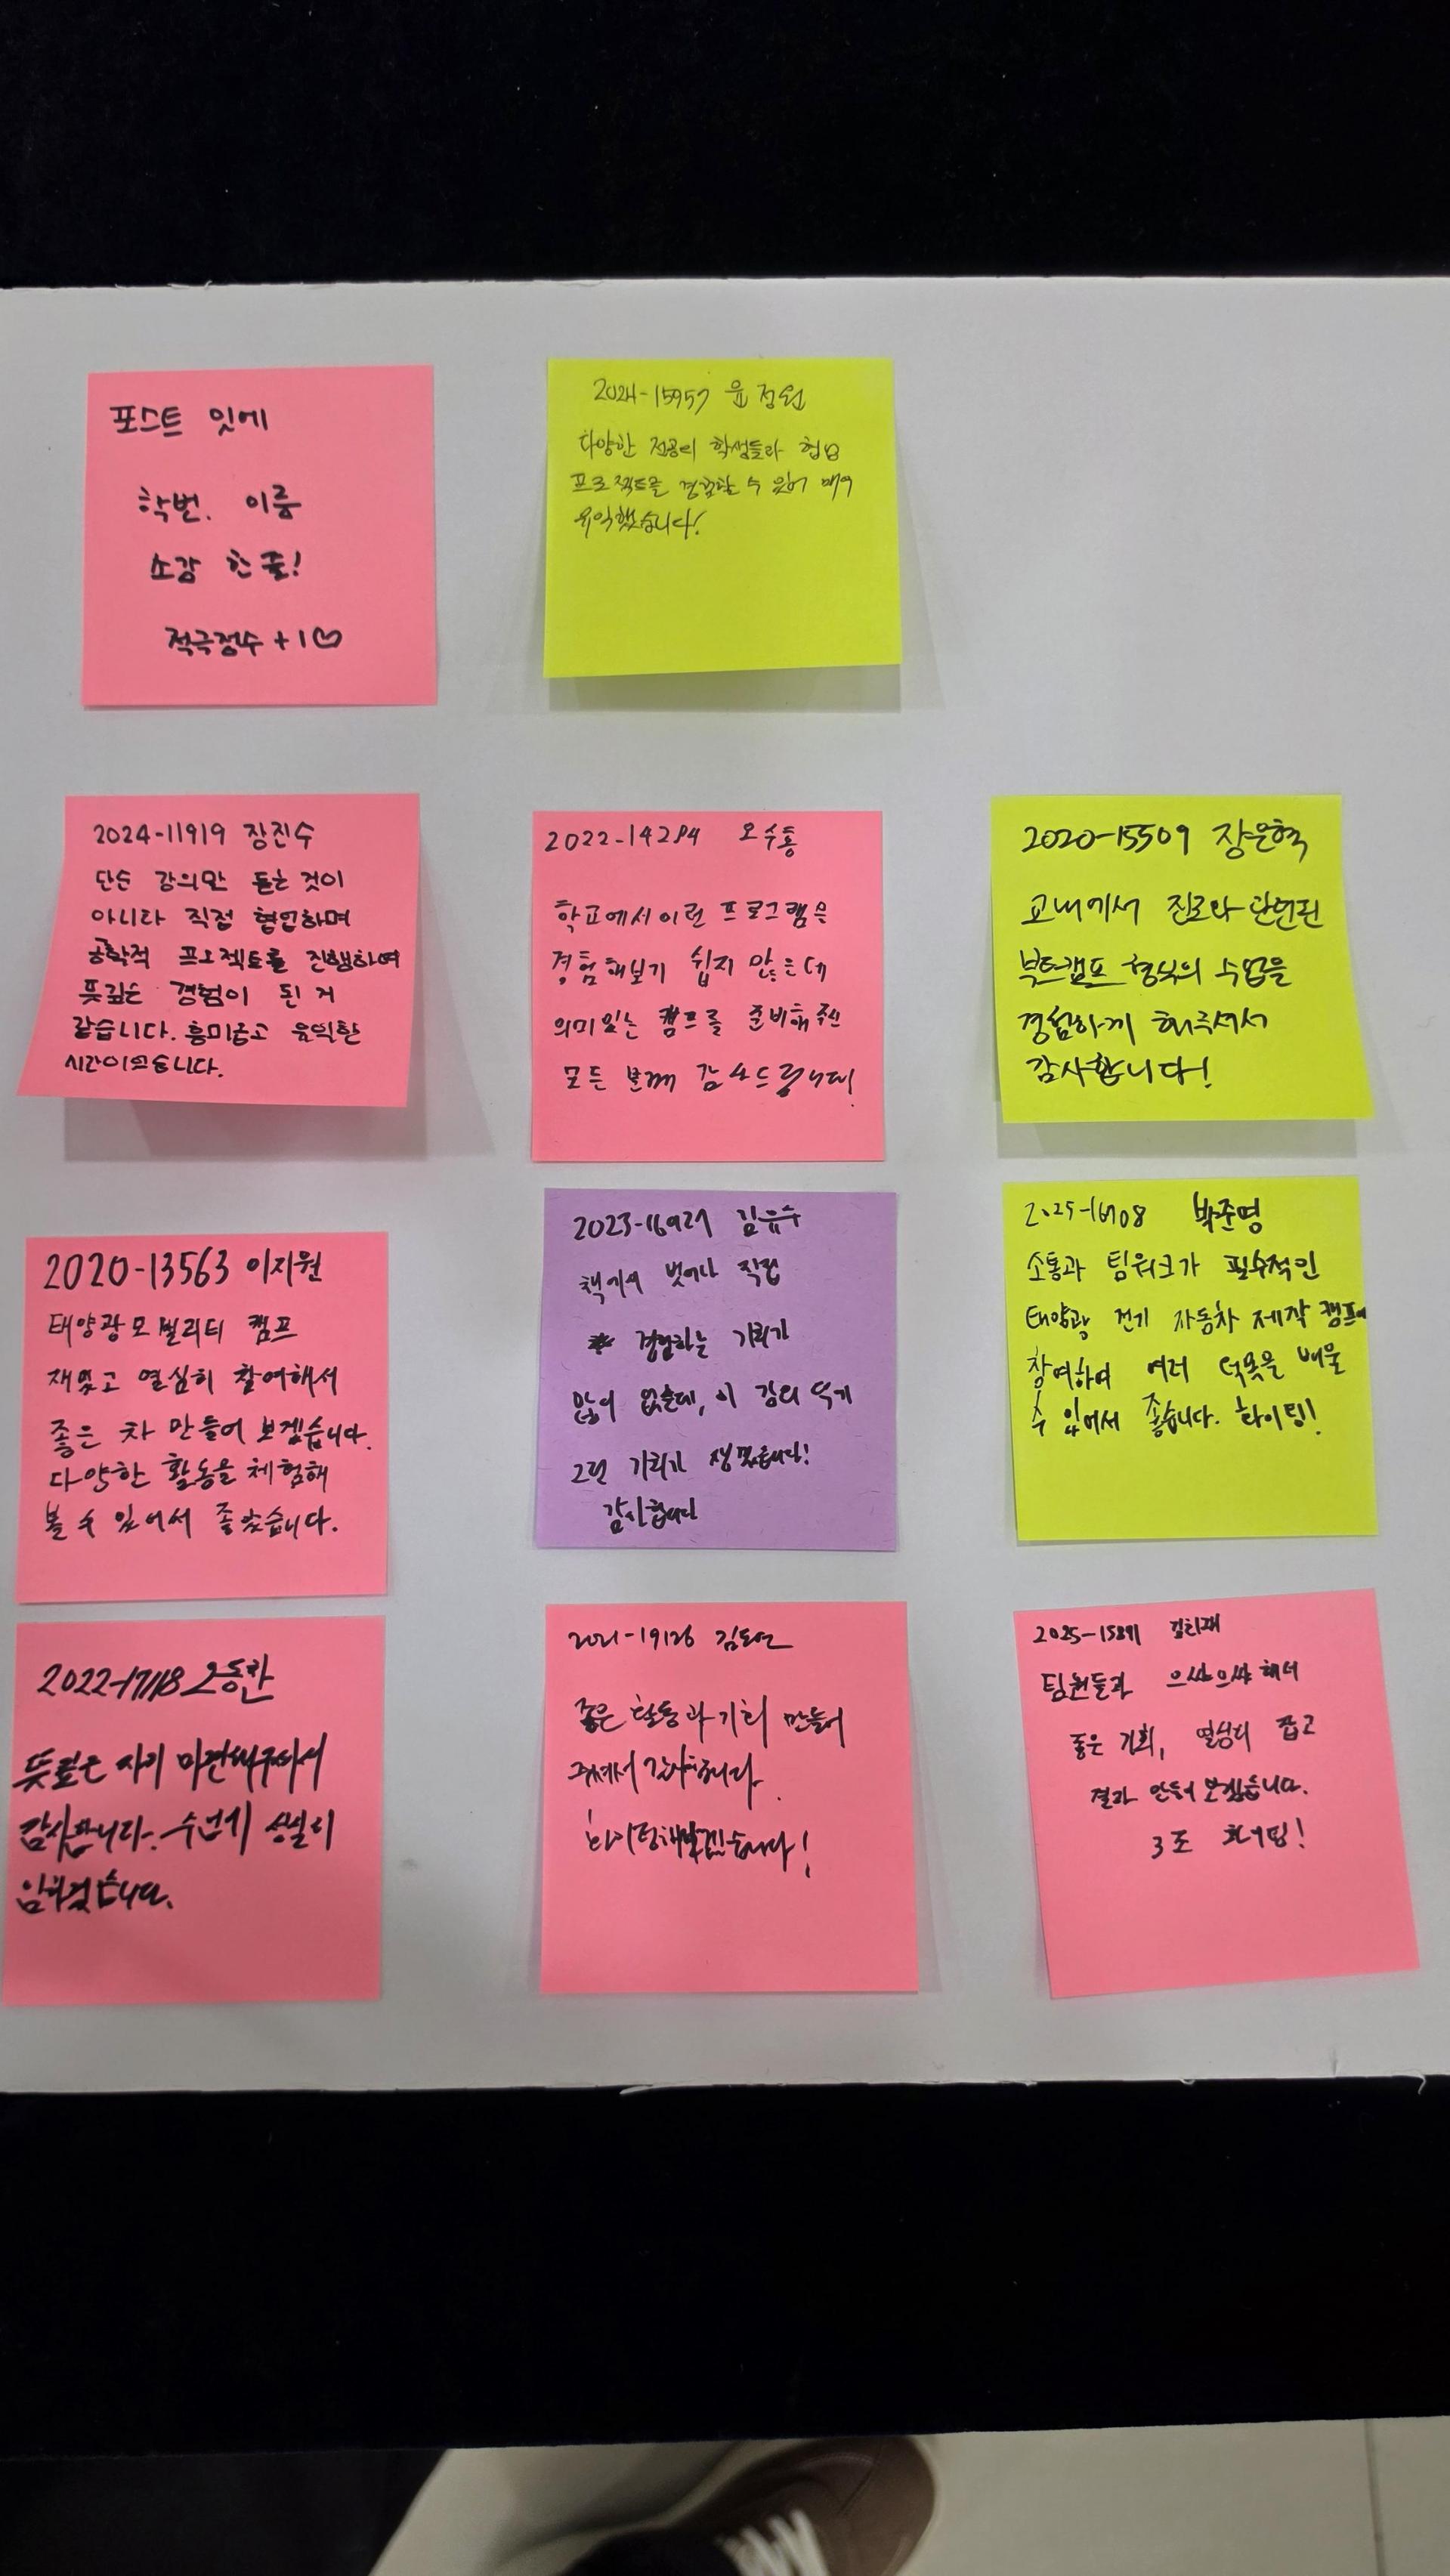 포스트 잇에
학번. 이름
소감 한 줄!
적극점수 +1♡
2024-15957 윤정원
다양한 전공의 학생들과 협업
프로젝트를 경험할 수 있어 매우
유익했습니다!
2024-11919 장진수
단순 강의만 듣는 것이
아니라 직접 협업하며
공학적 프로젝트를 진행하여
뜻깊은 경험이 된 거
같습니다. 흥미롭고 유익한
시간이었습니다.
2022-14284 오수통
학교에서 이런 프로그램을
경험해보기 쉽지 않은데
의미있는 캠프를 준비해 주신
모든 분께 감사드립니다!
2020-15509 장은혁
교내에서 진로와 관련된
부트캠프 형식의 수업을
경험하게 해주셔서
감사합니다!
2020-13563 이지원
태양광모빌리티 캠프
재밌고 열심히 참여해서
좋은 차 만들어 보겠습니다.
다양한 활동을 체험해
볼 수 있어서 좋았습니다.
2023-16927 김유수
책에서 벗어나 직접
경험하는 기회가
많이 없는데, 이 강의 덕에
그런 기회가 생겼습니다!
감사합니다
박준영
소통과 팀워크가 필수적인
태양광 전기 자동차 제작 캠프에
참여하여 여러 덕목을 배울
수 있어서 좋습니다. 화이팅!
2022-17118 오동찬
뜻깊은 자리 마련해주셔서
감사합니다. 수업에 성실히
임하겠습니다.
2021-19126
좋은 활동과 기회 만들어
주셔서 감사합니다.
화이팅해보겠습니다!
2025-15891 김희재
팀원들과 으쌰으쌰 해서
좋은 기회, 열심히 잡고
결과 만들어 보겠습니다.
3조 화이팅!